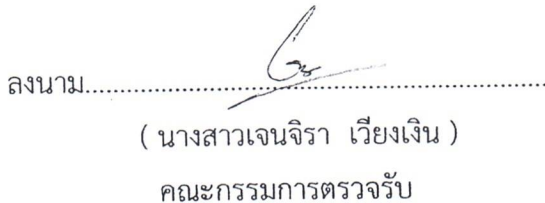 ลงนาม................................................................
( นางสาวเจนจิรา เวียงเงิน )
คณะกรรมการตรวจรับ